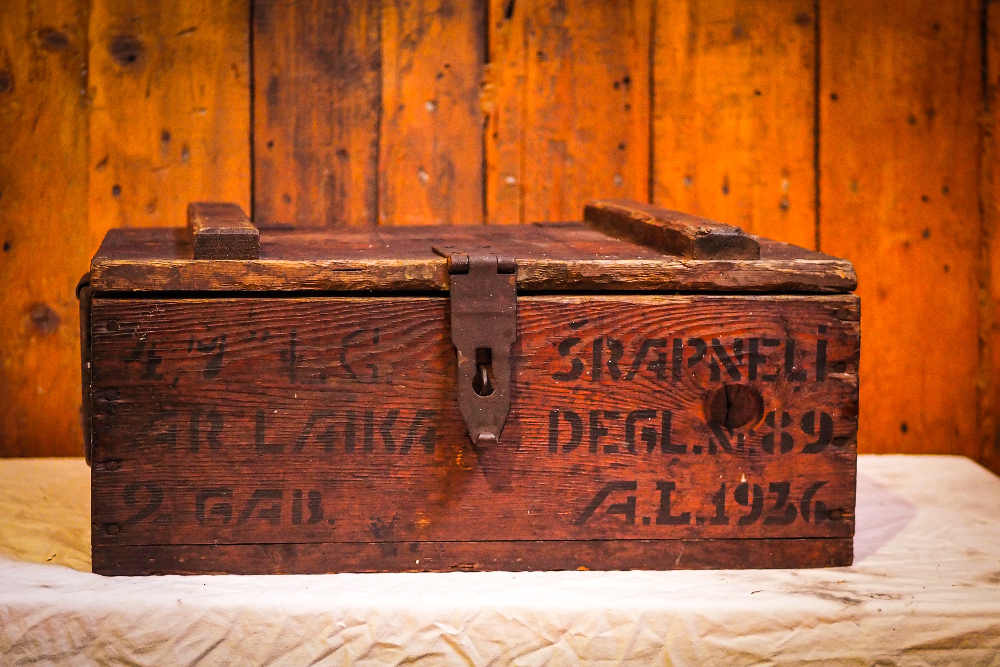 4,7" L.G. ŠRAPNELI
AR LAIKA DEGL. № 89
2 GAB. A.L.1936